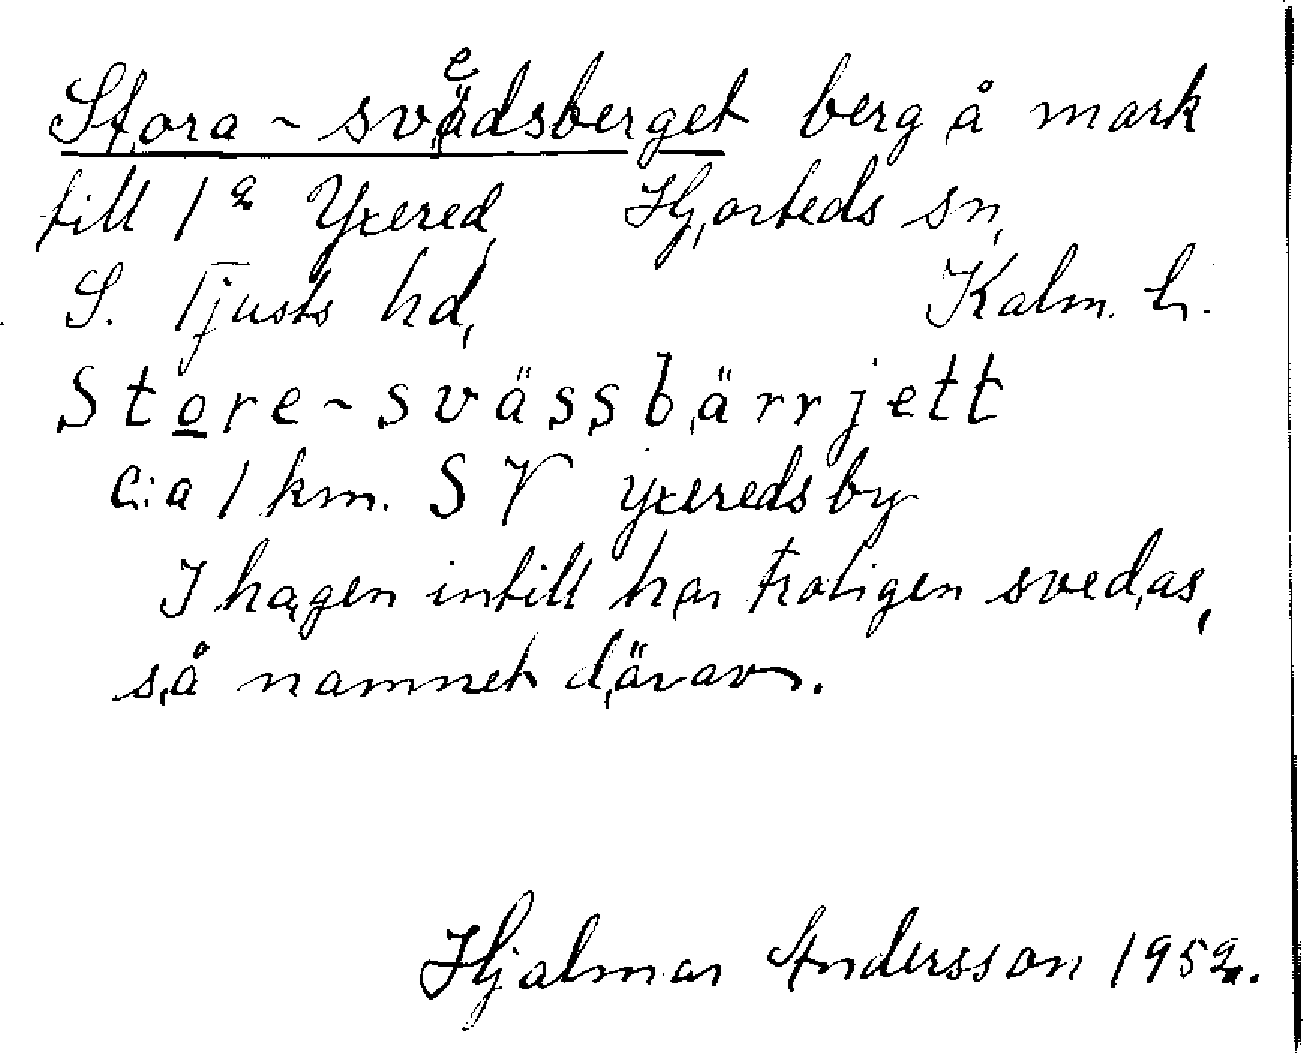 Stora-svedsberget berg å mark
till 1² Yxered Hjorteds sn,
S. Tjusts hd, Kalm. l.
Store-svässbärrjett
c:a 1 km. SV yxereds by
I hagen intill har troligen svedas,
så namnet därav.
Hjalmar Andersson 1952.